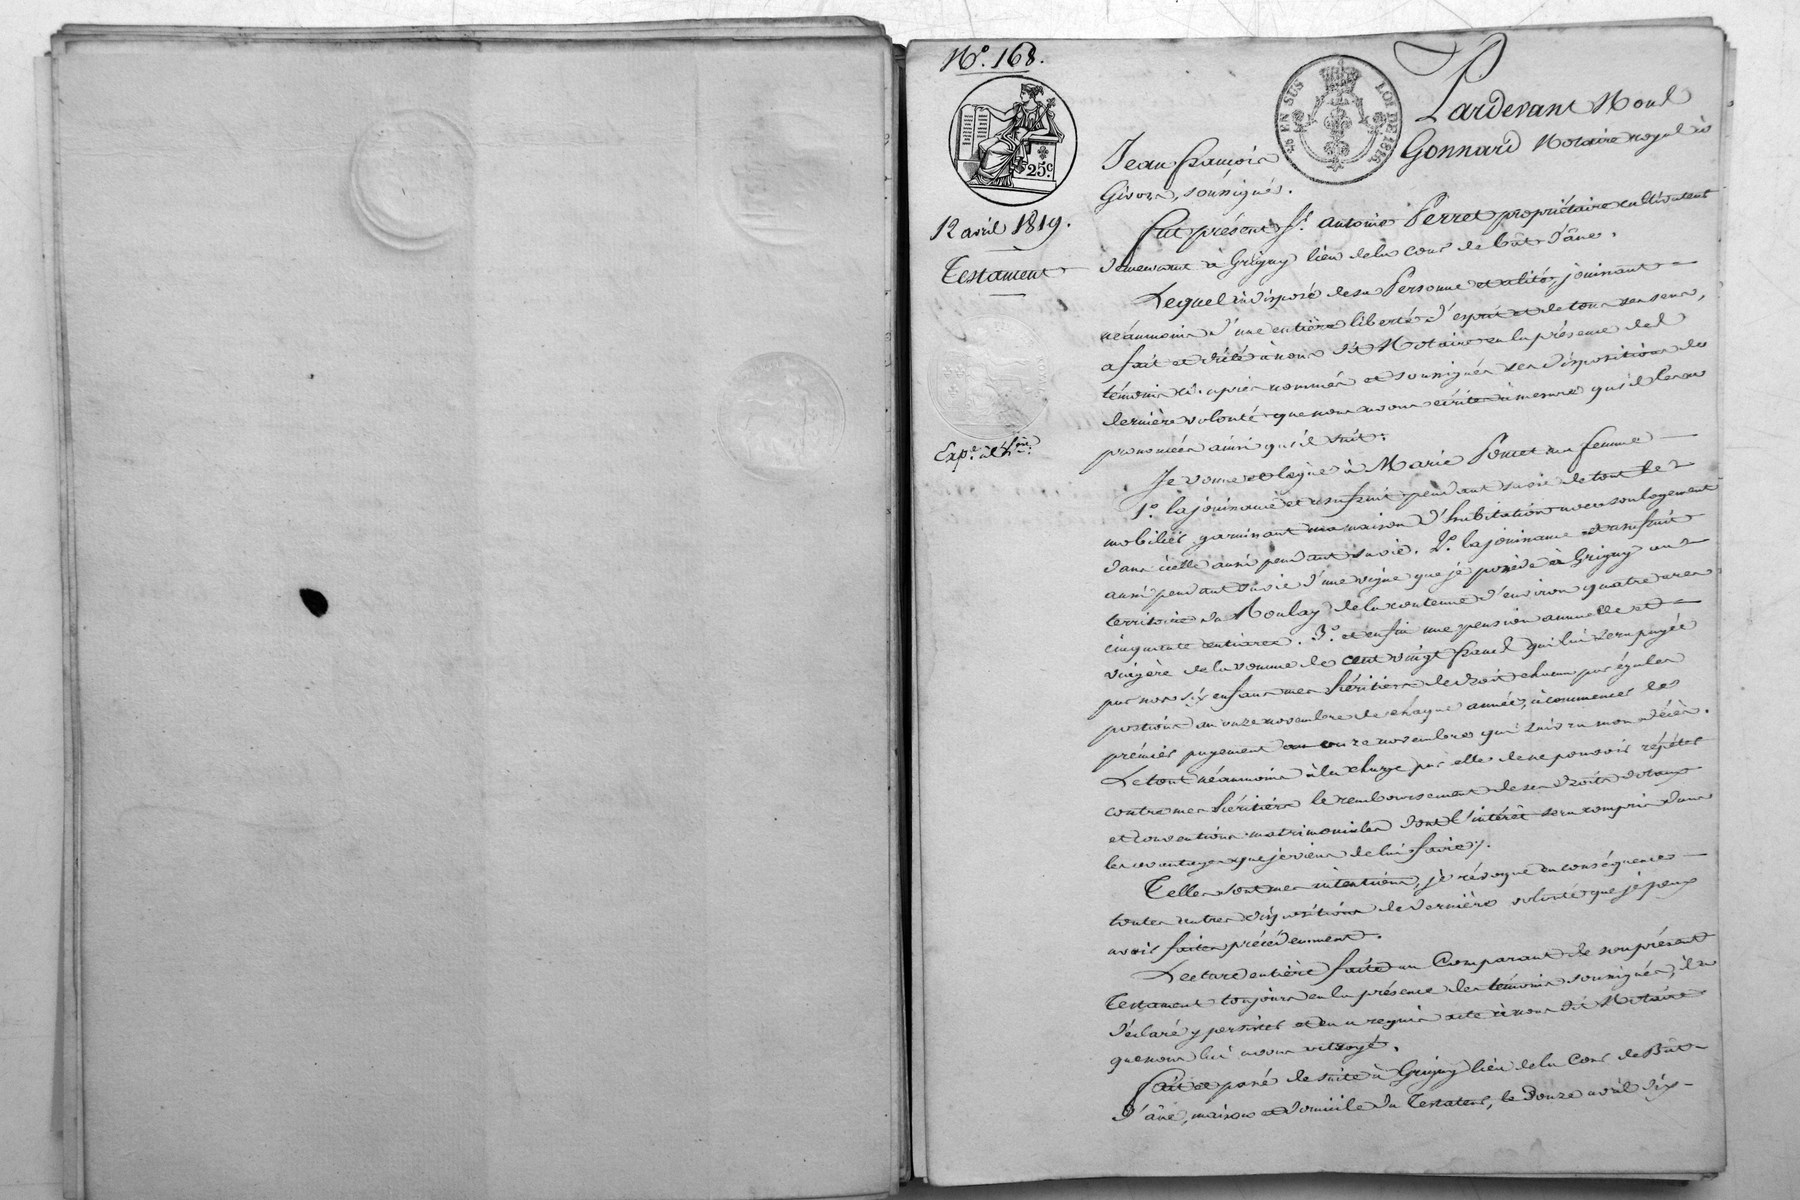 N.° 168.
25 EN SUS
LOI DE 1816
25c
12 avril 1819.
Testament
Exp.
Pardevant Nous
Jean françois Gonnard Notaire royal à
Givors, soussignés.
fut présent Sr. Antoine Perret propriétaire cultivateur
demeurant à Grigny lieu de la Cour de bât-d'âne.
Lequel indisposé de sa Personne et alité, jouissant
néanmoins d'une entière liberté d'esprit et de tous ses sens,
a fait et dicté à nous dit Notaire en la présence des
témoins ci-après nommés et soussignés ses dispositions de
dernière volonté que nous avons écrites à mesure qu'il les a
prononcées ainsi qu'il suit:
Je donne et lègue à Marie Poncet ma femme
1.° la jouissance et usufruit pendant sa vie de tout le
mobilier garnissant ma maison d'habitation avec son logement
dans icelle aussi pendant sa vie. 2.° la jouissance et usufruit
aussi pendant sa vie d'une vigne que je possède à Grigny au
territoire du Moulay de la contenue d'environ quatre ares
cinquante centiares. 3.° et enfin une pension annuelle et
viagère de la somme de cent vingt francs qui lui sera payée
par nos six enfans mes héritiers de droit chacun par égales
portions au onze novembre de chaque année, à commencer le
premier payement au onze novembre qui suivra mon décès.
Le tout néanmoins à la charge par elle de ne pouvoir répéter
contre mes héritiers le remboursement de ses droits dotaux
et conventions matrimoniales dont l'intérêt sera compris dans
les avantages que je viens de lui faire.
Telles sont mes intentions, je révoque en conséquence
toutes autres dispositions de dernière volonté que je peux
avoir faites précédemment.
Lecture entière faite au Comparant de son présent
Testament toujours en la présence des témoins soussignés, il a
déclaré y persister et en a requis acte à nous dit Notaire
que nous lui avons octroyé.
fait et passé de suite à Grigny lieu de la Cour de Bât-
d'âne, maison et domicile du Testateur, le Douze avril dix-